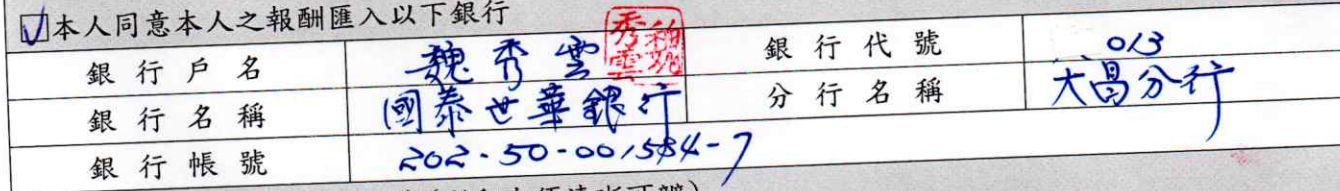 ☑本人同意本人之報酬匯入以下銀行
銀行戶名 魏秀雲 魏秀雲 銀行代號 013
銀行名稱 國泰世華銀行 分行名稱 大昌分行
銀行帳號 202-50-001584-7